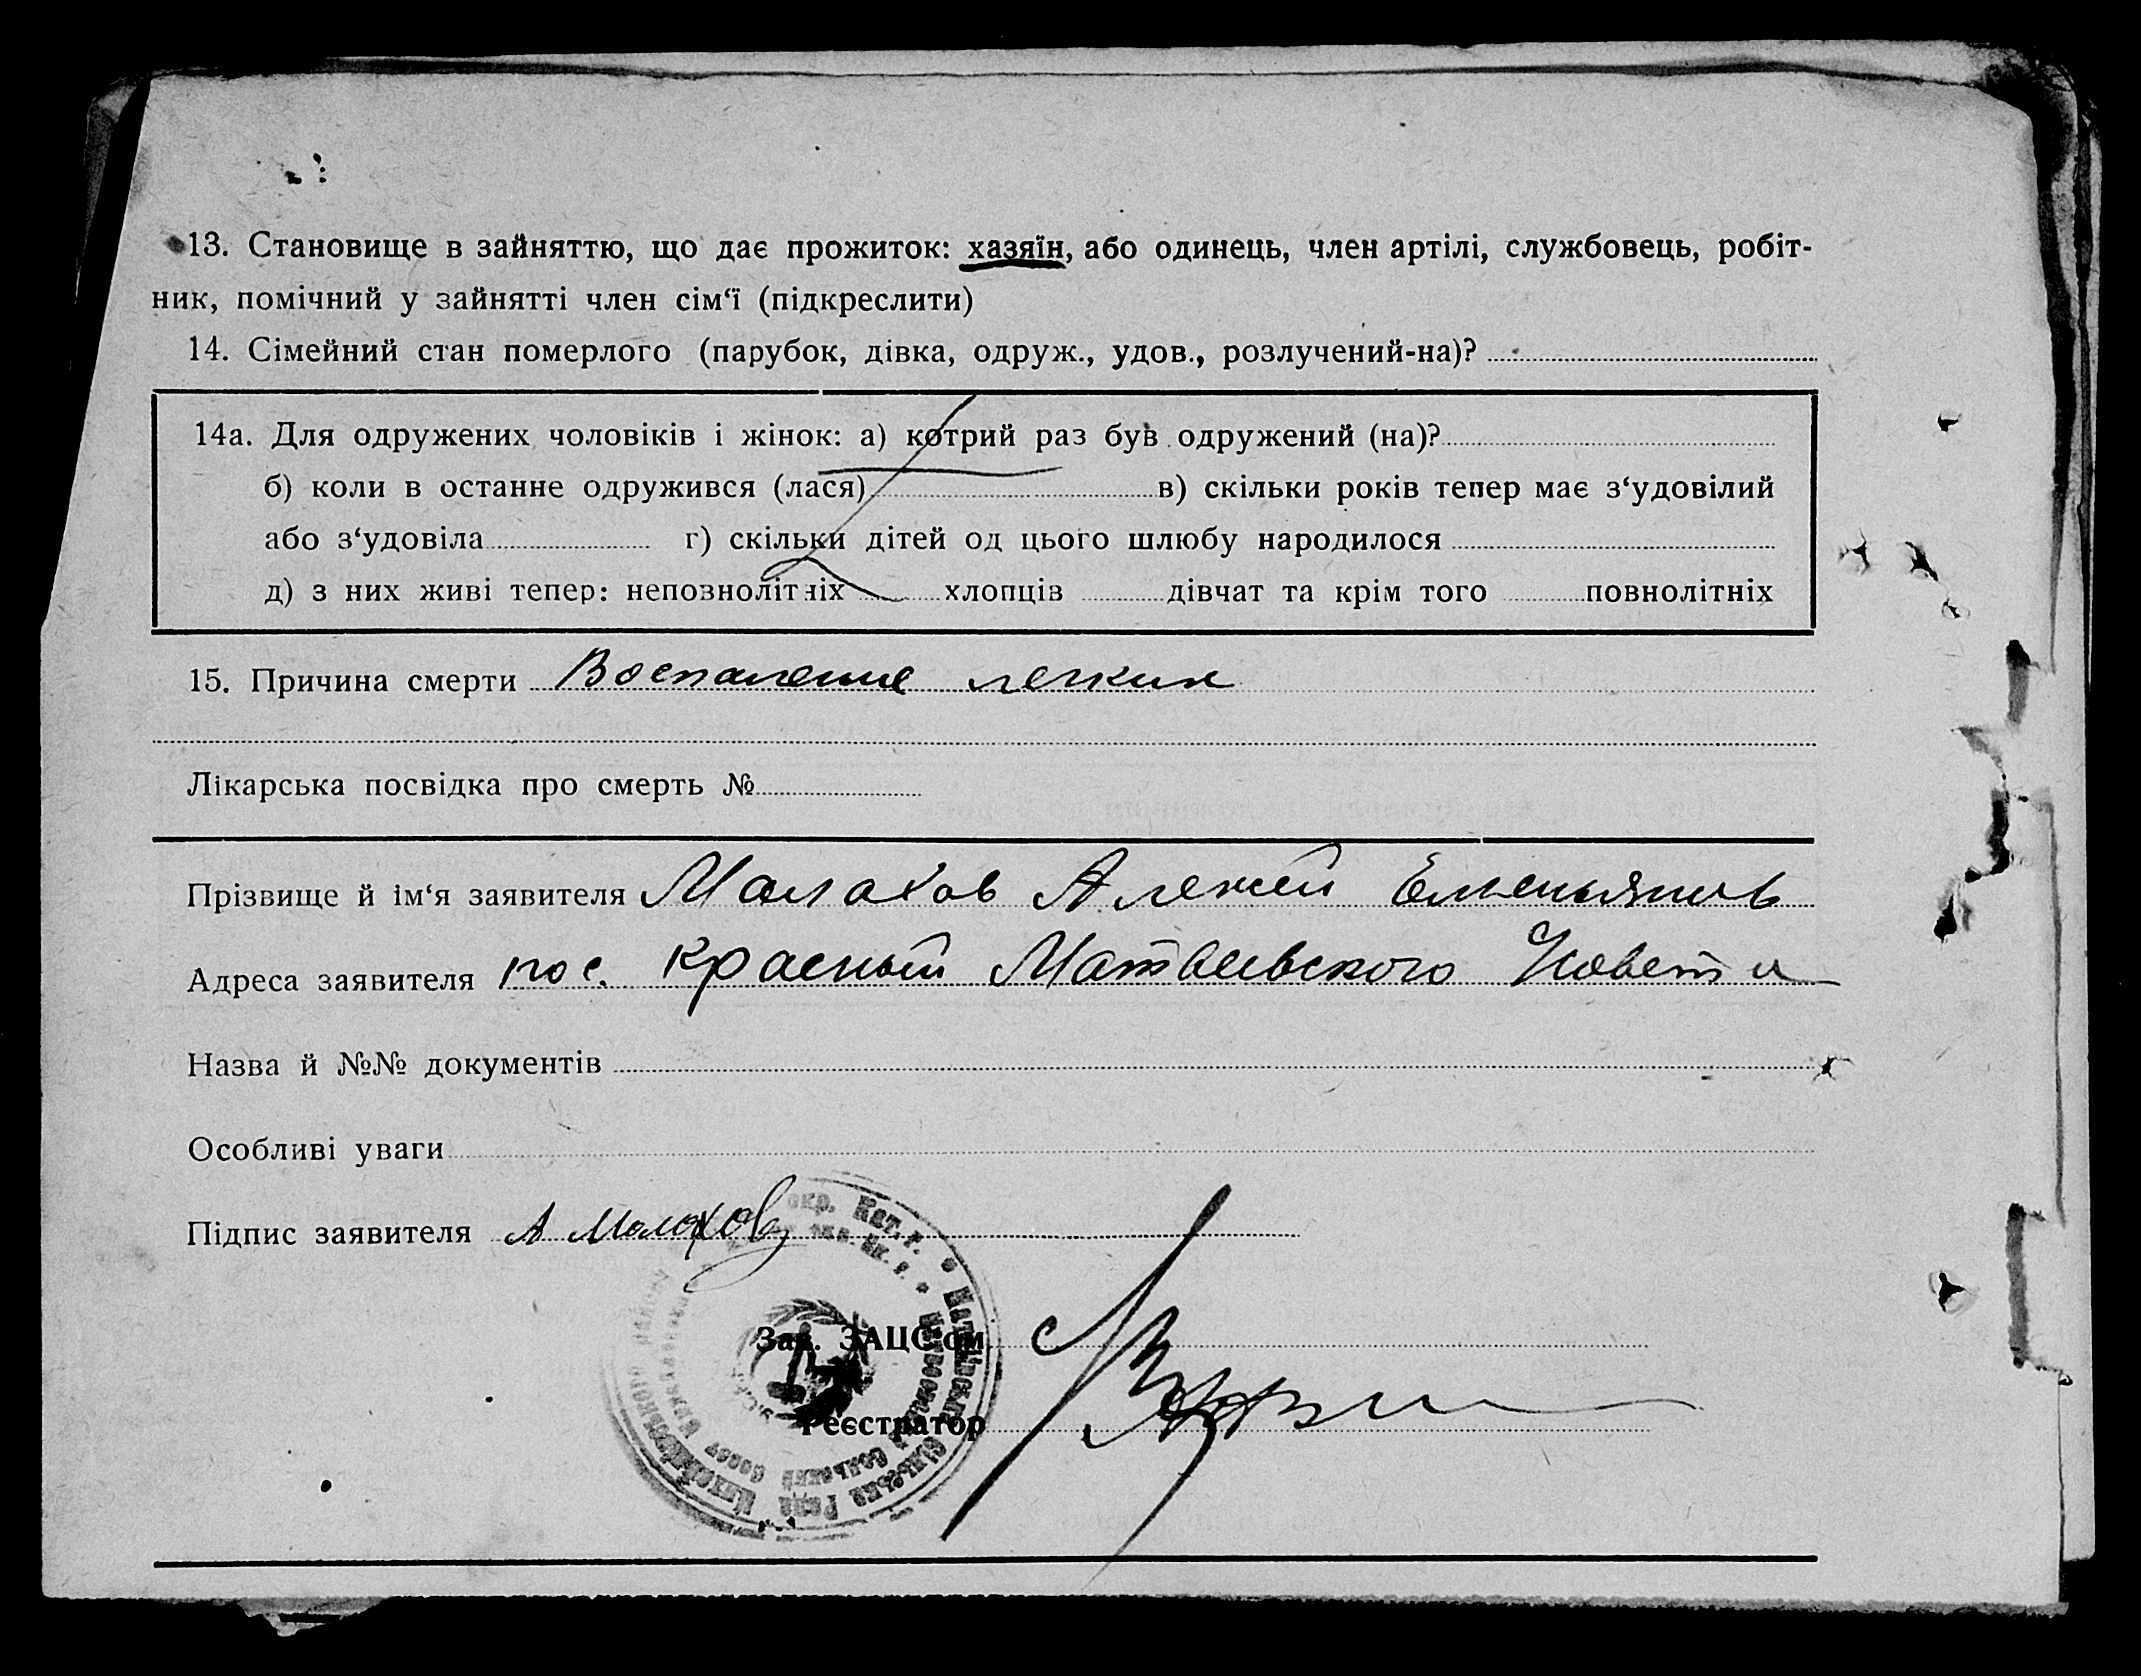 13. Становище в зайняттю, що дає прожиток: хазяїн, або одинець, член артілі, службовець, робіт-
ник, помічний у зайнятті член сім‘ї (підкреслити)
14. Сімейний стан померлого (парубок, дівка, одруж., удов., розлучений-на)?
14а. Для одружених чоловіків і жінок: а) котрий раз був одружений (на)?
б) коли в останне одружився (лася) в) скільки років тепер має з‘удовілий
або з‘удовіла г) скільки дітей од цього шлюбу народилося
д) з них живі тепер: непознолітніх хлопців дівчат та крім того повнолітніх
15. Причина смерти Воспаление легких
Лікарська посвідка про смерть №
Прізвище й ім‘я заявителя Малахов Алексей Емельянов
Адреса заявителя пос. Красный Матвеевского
Назва й №№ документів
Особливі уваги
Підпис заявителя А Малахов
окр. Кат. г.
Зав. ЗАЦС‘ом
Реєстратор
сільська Рада